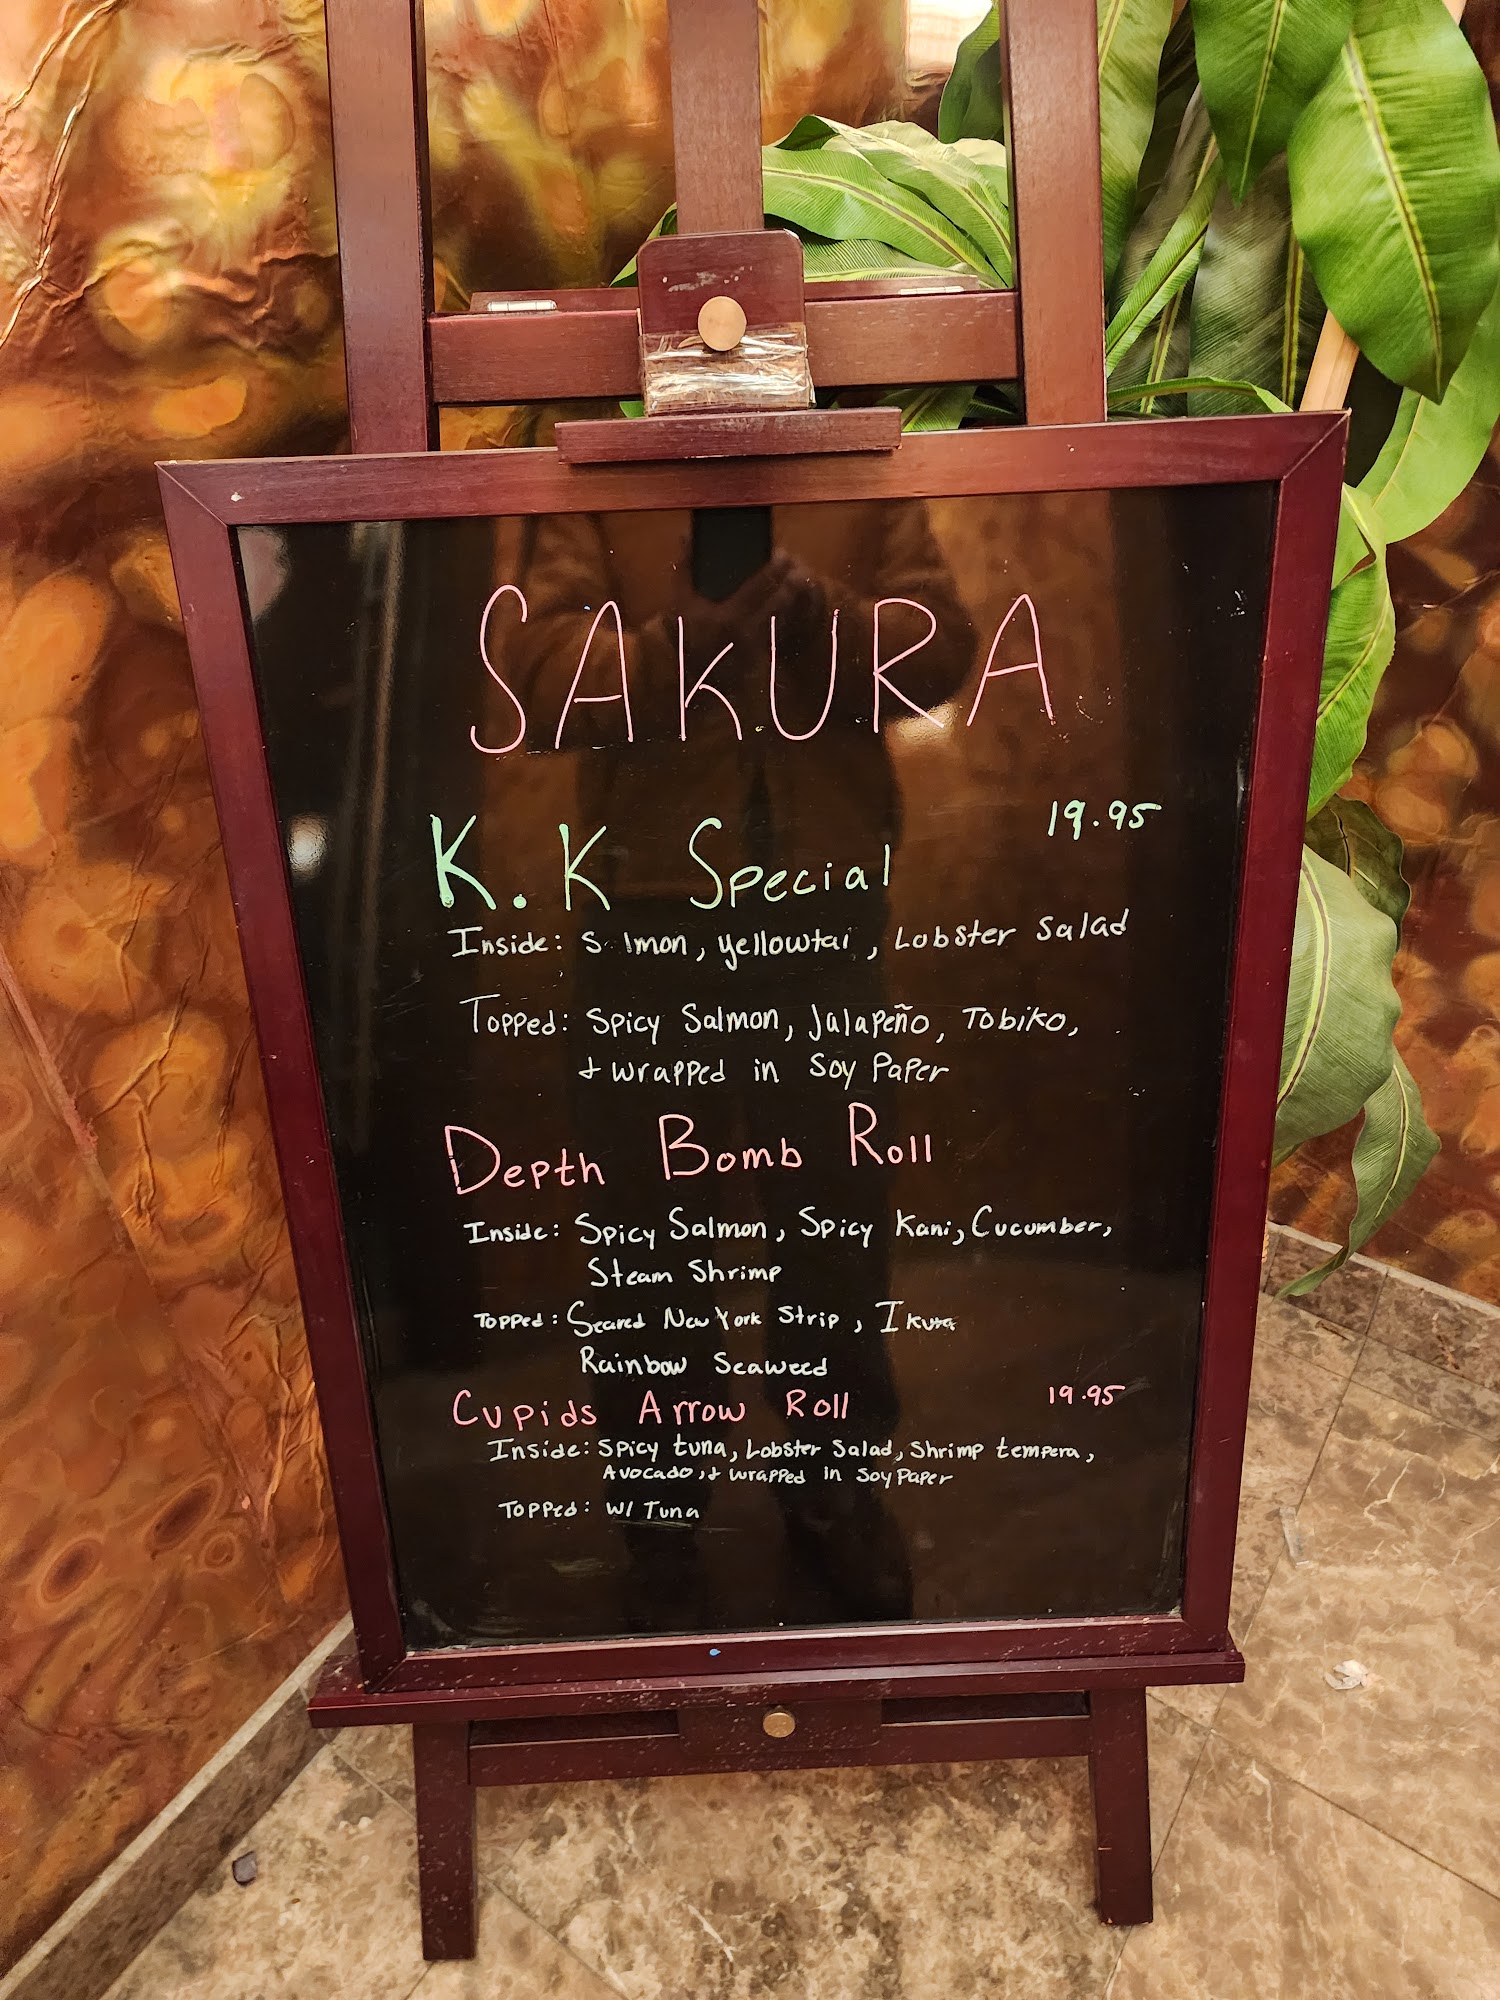 SAKURA
K.K Special 19.95
Inside: S lmon, yellowtai , Lobster Salad
Topped: Spicy Salmon, Jalapeño, Tobiko,
+ wrapped in Soy Paper
Depth Bomb Roll
Inside: Spicy Salmon, Spicy Kani, Cucumber,
Steam Shrimp
Topped: Seared New York Strip, Ikura
Rainbow Seaweed
Cupids Arrow Roll 19.95
Inside: Spicy tuna, Lobster Salad, Shrimp tempera,
Avocado, + wrapped in Soy Paper
Topped: W/ Tuna